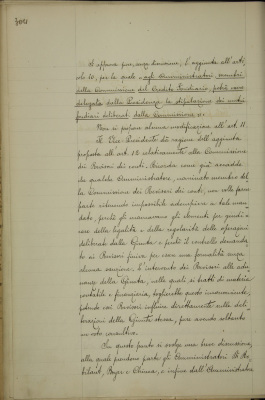 304
Si approva pure, senza discussione, l'aggiunta all'arti-
colo 10, per la quale "agli Amministratori, membri
della Commissione del Credito Fondiario, potrà essere
delegata dalla Presidenza la stipulazione dei mutui
fondiari deliberati dalla Commissione".
Non si propone alcuna modificazione all'art. 11.
Il Vice-Presidente dà ragione dell'aggiunta
proposta all'art. 12 relativamente alla Commissione
dei Revisori dei conti. Ricorda come già accadde
che qualche Amministratore, nominato membro del-
la Commissione dei Revisori dei conti, non volle farne
parte ritenendo impossibile adempiere a tale man-
dato, perchè gli mancavano gli elementi per giudi-
care della legalità e della regolarità delle operazioni
deliberate dalla Giunta e perchè il controllo demanda-
to ai Revisori finiva per essere una formalità senza
alcuna sanzione. L'intervento dei Revisori alle adu-
nanze della Giunta, nelle quali si tratti di materia
contabile e finanziaria, toglierebbe questo inconveniente,
potendo essi Revisori influire direttamente sulle deli-
berazioni della Giunta stessa, pure avendo soltanto
un voto consultivo.
Su questo punto si svolge una breve discussione,
alla quale prendono parte gli Amministratori
e infine dall'Amministratore